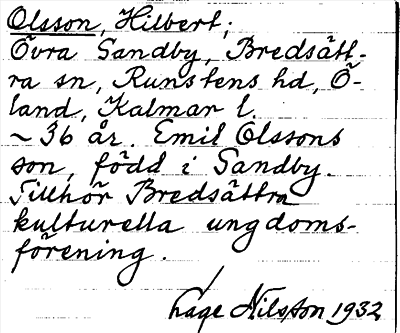 Olsson, Hilbert;
Övra Sandby, Bredsätt-
ra sn, Runstens hd, Ö-
land, Kalmar l.
~ 36 år. Emil Olssons
son, född i Sandby.
Tillhör Bredsättra
kulturella ungdoms-
förening.
Lage Nilsson 1932